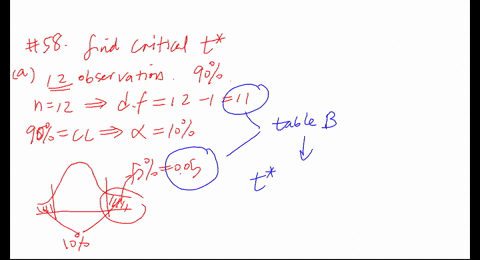 #58. find critical t*
(a) 12 observations. 90%
n=12 ⇒ d.f = 12 -1 = 11
90% = CL ⇒ α = 10%
table B
5% = 0.05
t*
10%